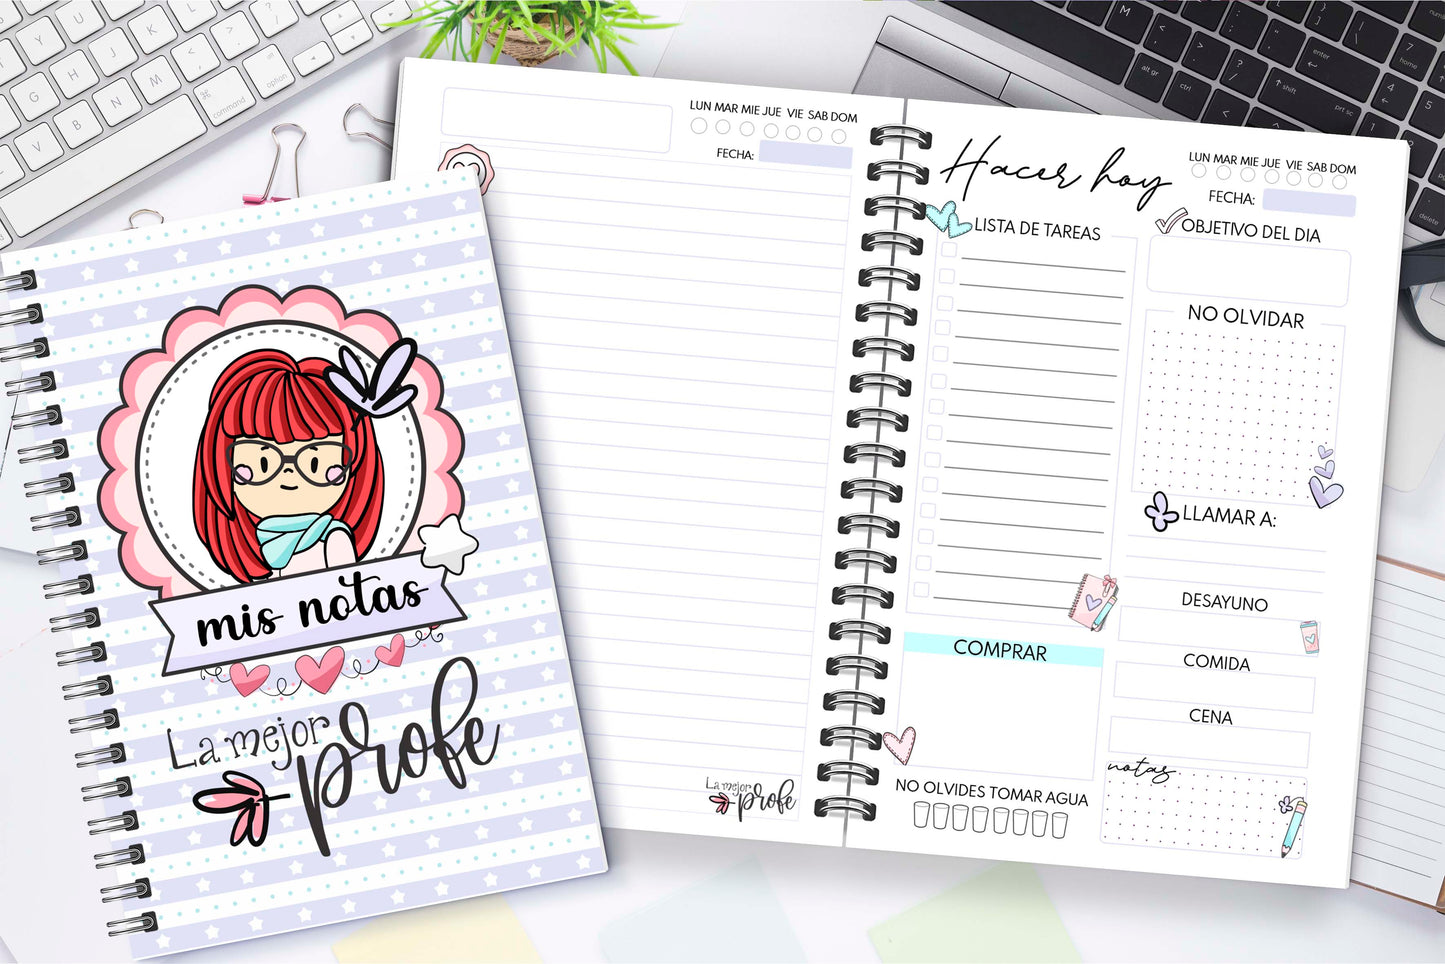 mis notas
La mejor
profe
LUN MAR MIE JUE VIE SAB DOM
FECHA:
La mejor
profe
Hacer hoy
LUN MAR MIE JUE VIE SAB DOM
FECHA:
LISTA DE TAREAS
OBJETIVO DEL DIA
NO OLVIDAR
LLAMAR A:
DESAYUNO
COMIDA
CENA
notas
COMPRAR
NO OLVIDES TOMAR AGUA
command
option
alt gr
ctrl
enter
shift
prt sc
home
delete